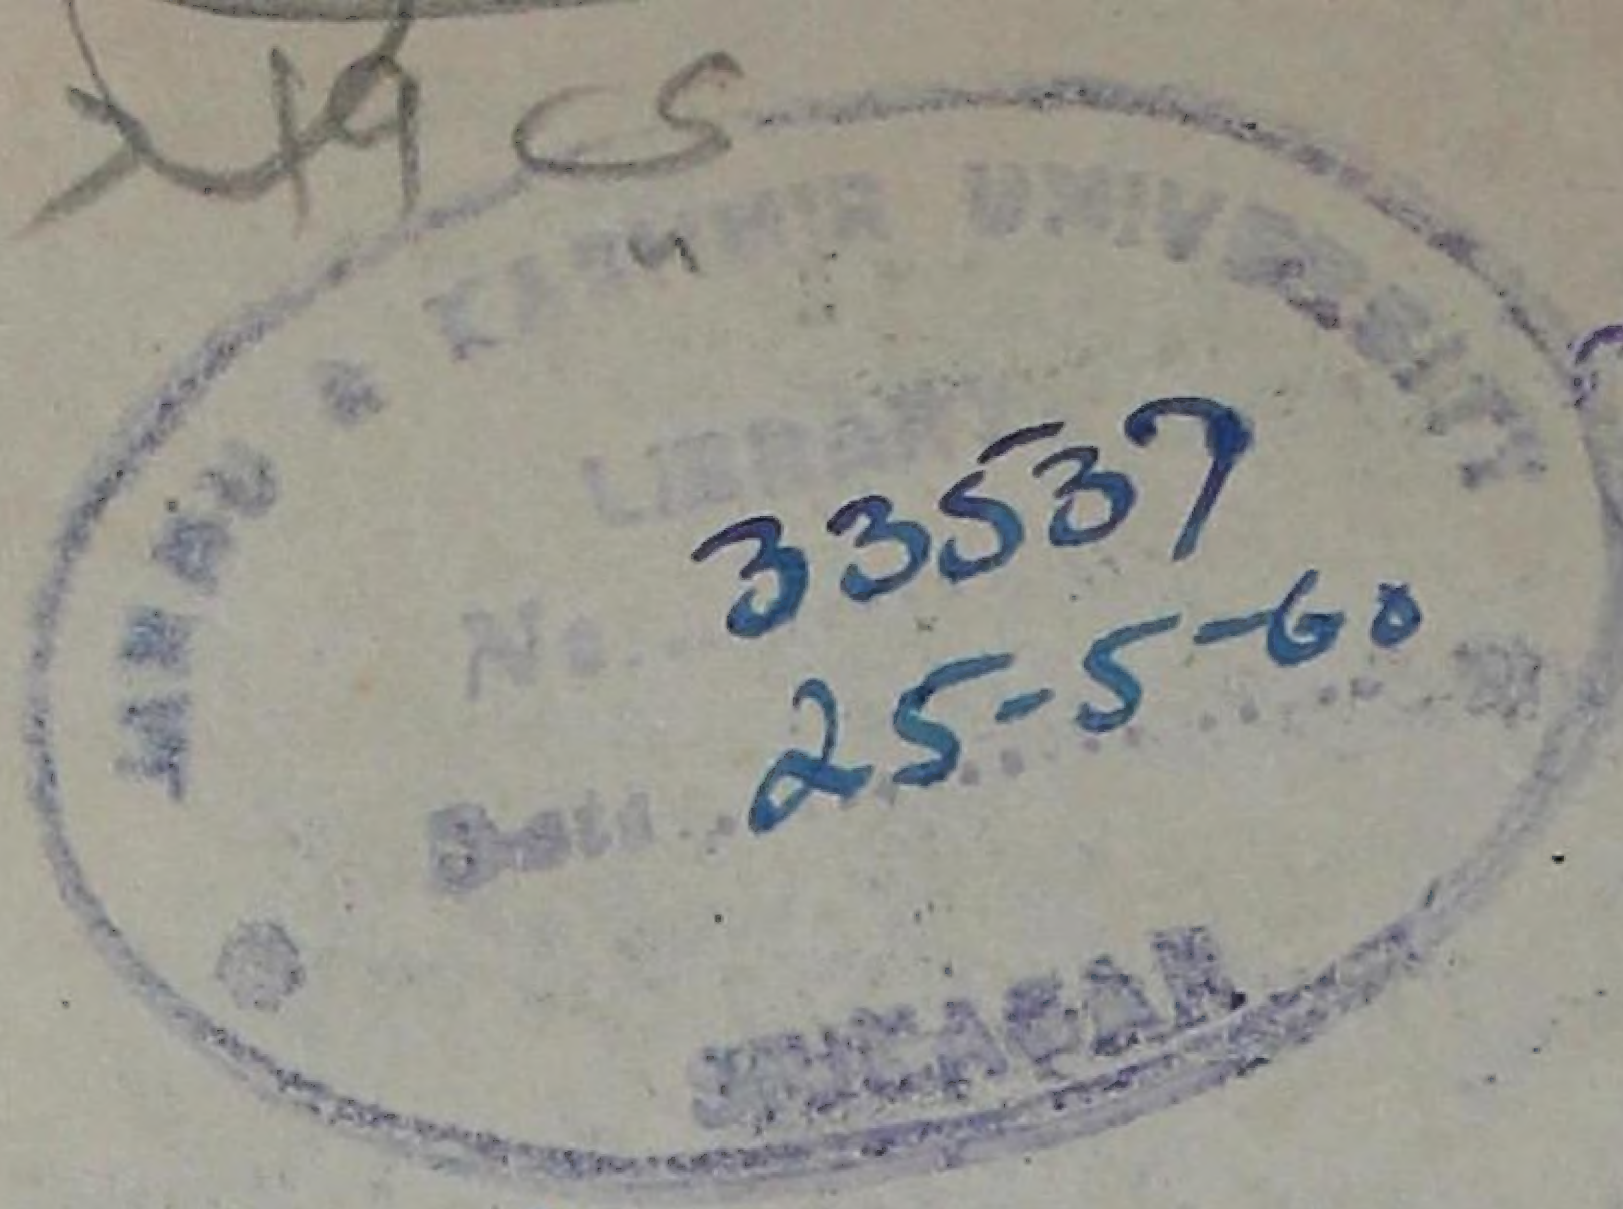 JAMMU & KASHMIR UNIVERSITY
LIBRARY
No. 33537
Date 25-5-60
SRINAGAR